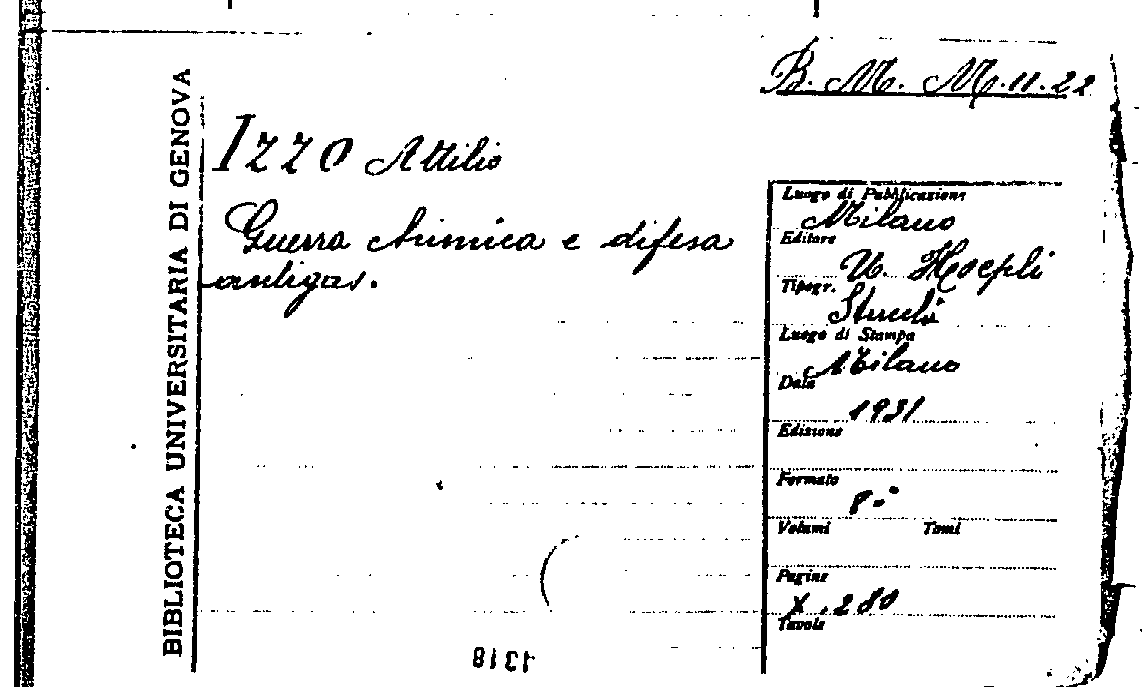 B. M. M. 11. 22
BIBLIOTECA UNIVERSITARIA DI GENOVA
IZZO Attilio
Guerra chimica e difesa
antigas.
Luogo di Pubblicazione
Milano
Editore
U. Hoepli
Tipogr.
Luogo di Stampa
Milano
Data
1931
Edizione
Formato
8-°
Volumi Tomi
Pagine
X, 280
Tavole
1318